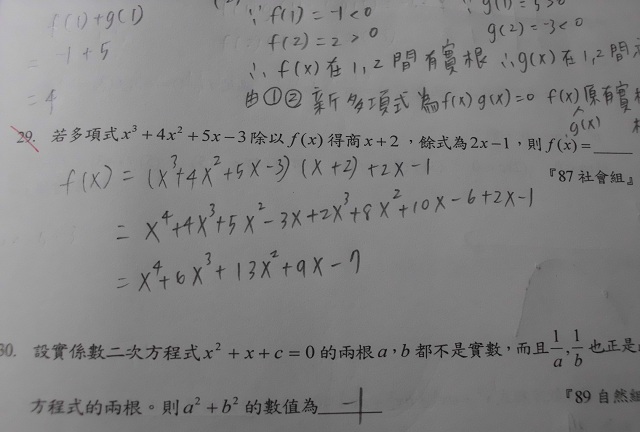 f(1)+g(1)
= -1+5
= 4
∵ f(1) = -1 < 0
f(2) = 2 > 0
∴ f(x) 在 1,2 間有實根
g(2) = -3 < 0
∴ g(x) 在 1,2 間
由①② 新多項式為 f(x) g(x) = 0 f(x) 原有實根
g(x)
29. 若多項式 x³ + 4x² + 5x − 3 除以 f(x) 得商 x + 2 ，餘式為 2x − 1，則 f(x) = ____
『87 社會組』
f(x) = (x³+4x²+5x-3) (x+2) +2x-1
= x⁴+4x³+5x²-3x+2x³+8x²+10x-6+2x-1
= x⁴+6x³+13x²+9x-7
30. 設實係數二次方程式 x² + x + c = 0 的兩根 a, b 都不是實數，而且 1/a, 1/b 也正是
方程式的兩根。則 a² + b² 的數值為 -1
『89 自然組